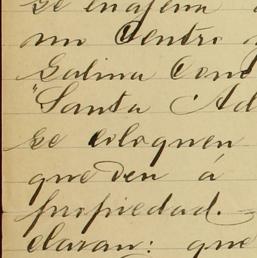 se enajena
un Centro
Salina Cons
"Santa Ad
se coloquen
queden á
propiedad.=
claran: que